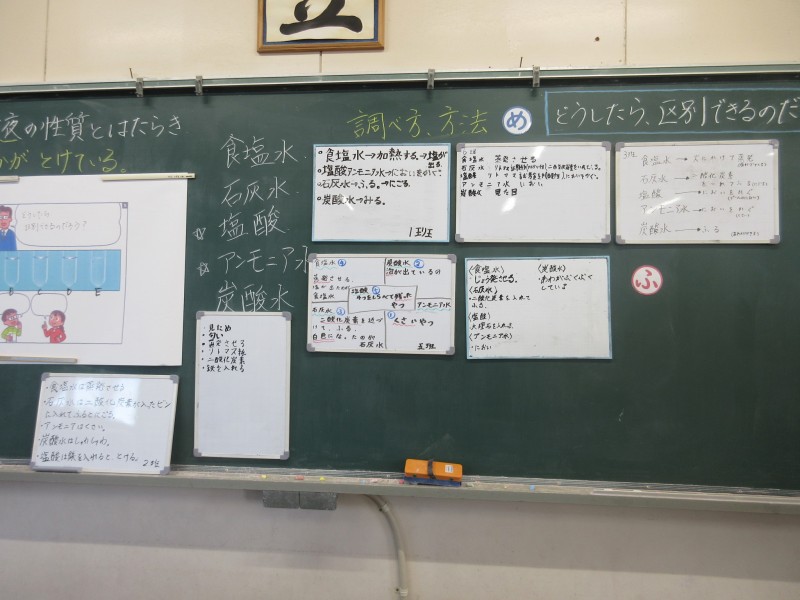 立
液の性質とはたらき
がとけている。
食塩水
石灰水
☆塩酸
☆アンモニア水
炭酸水
調べ方、方法
め
どうしたら、区別できるのだ
・食塩水→加熱する→塩が
出る。
・石灰水→ふる。→にごる。
・炭酸水→みる。
1班
食塩水 蒸発させる
石灰水
塩酸
アンモニア水 におい
炭酸水 見た目
3班
食塩水
石灰水→二酸化炭素
塩酸→においをかぐ
アンモニア水→においをかぐ
炭酸水→ふる
食塩水④
蒸発させる
食塩水
炭酸水②
泡が出ているの
塩酸⑤
やつ
アンモニア水
くさいやつ
石灰水③
二酸化炭素を近づ
けて、ふる。
白色になったのが
石灰水
五班
〈食塩水〉
・じょう発させる。
〈石灰水〉
・二酸化炭素を入れて
ふる。
〈塩酸〉
大理石を入れる。
〈アンモニア水〉
・におい
〈炭酸水〉
・あわがぶくぶく
している
ふ
・見ため
・匂い
・蒸発させる
・リトマス紙
・二酸化炭素
・鉄を入れる
・食塩水は蒸発させる
・石灰水は二酸化炭素が入ったビン
に入れてふるとにごる。
・アンモニアはくさい。
・炭酸水はしゅわしゅわ。
・塩酸は鉄を入れると、とける。
2班
D E